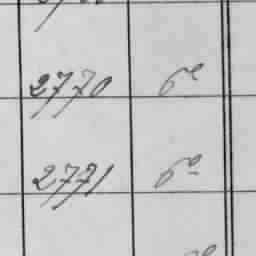 2770 6e
2771 6e